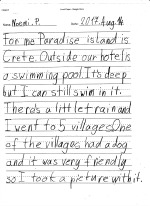 Name: Noemi.P. Date: 2017.Aug.14
For me Paradise island is
Crete. Outside our hotel is
a swimming pool. It's deep
but I can still swim in it.
There's a little rain and
I went to 5 villages. One
of the villages had a dog
and it was very friendly
so I took a picture with it.